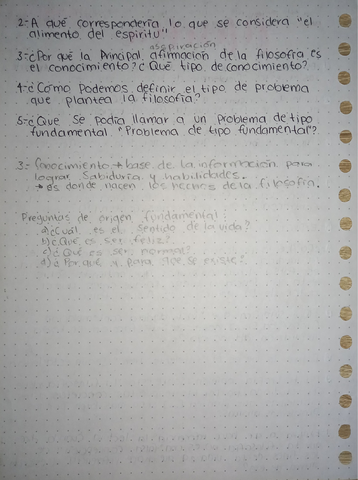 2-A qué correspondería lo que se considera "el
alimento del espíritu"
aspiración
3-¿Por qué la Principal afirmación de la filosofía es
el conocimiento? ¿Qué tipo de conocimiento?
4-¿Cómo Podemos definir el tipo de problema
que plantea la filosofía?
5-¿Que se podía llamar a un problema de tipo
fundamental "Problema de tipo fundamental"?
3- Conocimiento → base de la información para
lograr Sabiduría y habilidades.
→ es donde nacen los hechos de la filosofía.
Preguntas de origen fundamental:
a) ¿Cuál es el sentido de la vida?
b) ¿Que es ser feliz?
c) ¿Qué es ser hombre?
d) ¿Por qué y para se existe?